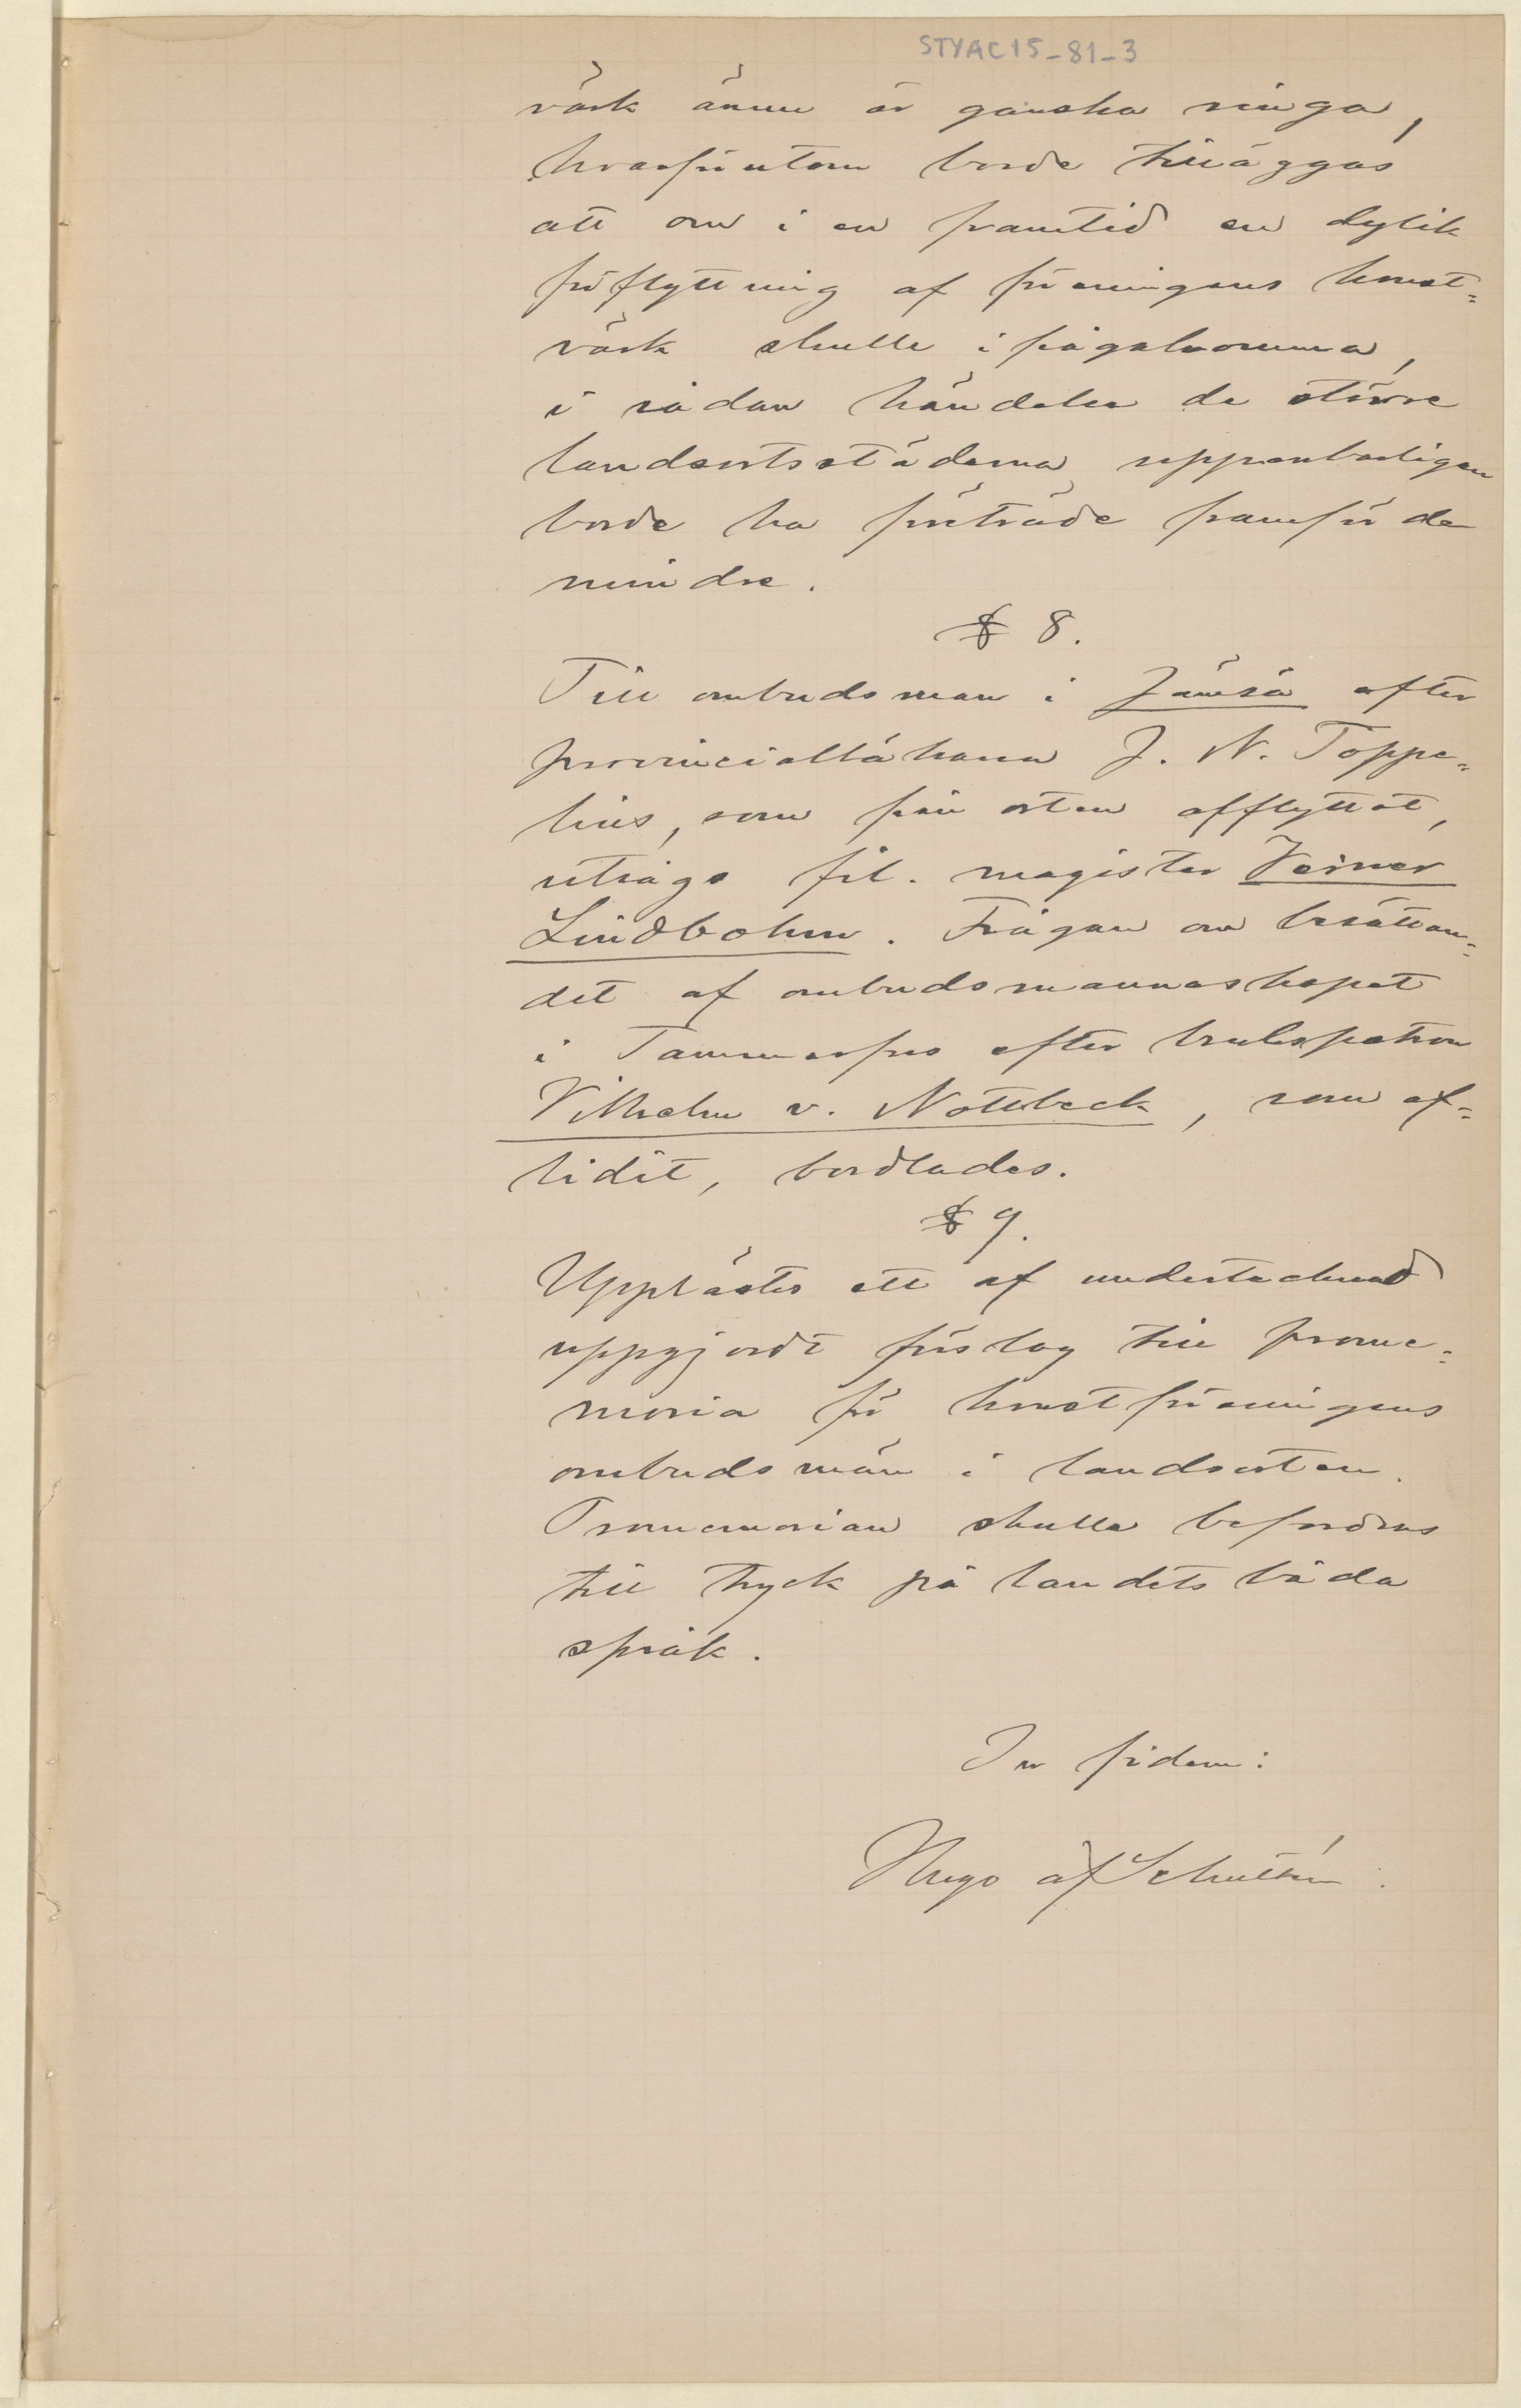 STYAC15-81-3
värk ännu är ganska ringa,
hvarförutom borde tilläggas
att om i en framtid en dylik
förflyttning af föreningens konst=
värk skulle ifrågakomma,
i sådan händelse de större
landsortsstäderna uppenbarligen
borde ha företräde framför de
mindre.
§ 8.
Till ombudsman i Jämsä efter
provincialläkaren J. N. Toppe=
lius, som från orten afflyttat,
utsågs fil. magister Verner
Lindbohm. Frågan om besättan=
det af ombudsmannaskapet
i Tammerfors efter brukspatron
Vilhelm v. Nottbeck, som af=
lidit, bordlades.
§ 9.
Upplästes ett af undertecknad
uppgjordt förslag till prome=
moria för konstföreningens
ombudsmän i landsorten.
Promemorian skulle befordras
till tryck på landets båda
språk.
In fidem:
Hugo af Schultén.